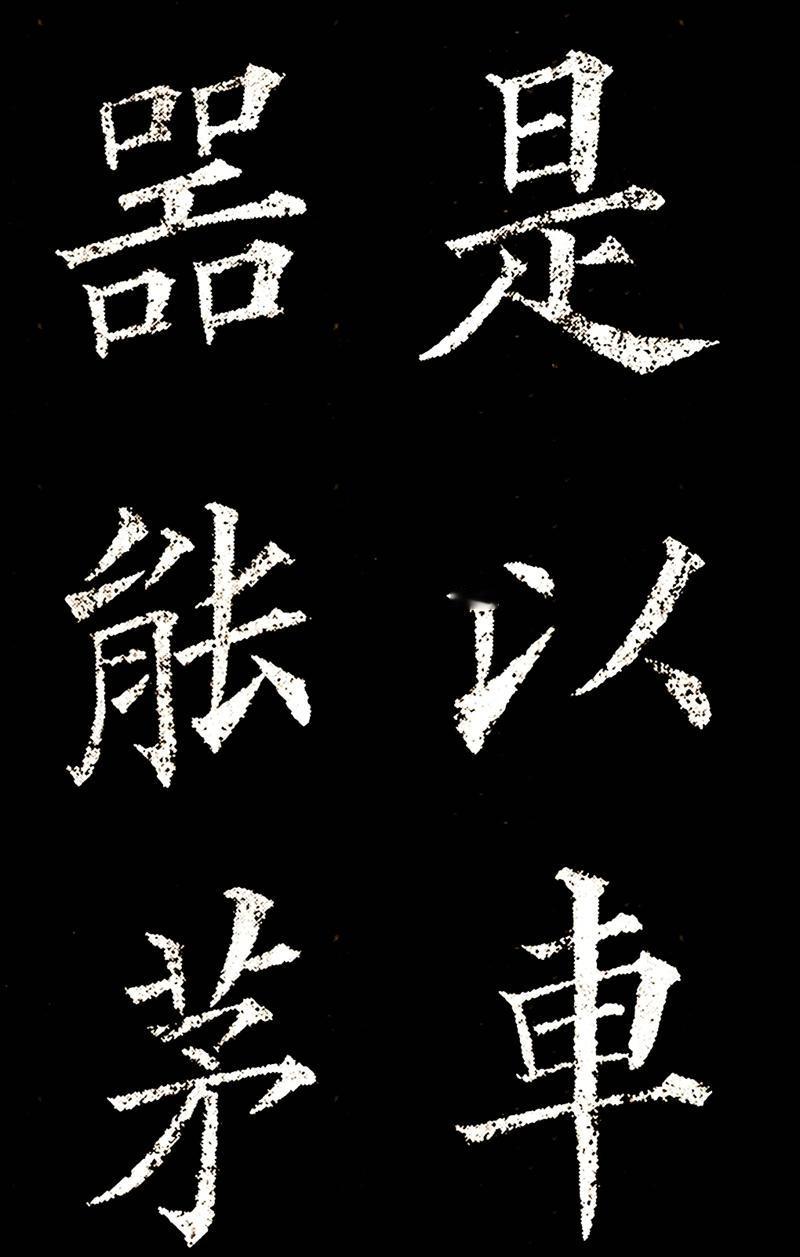 是以車
器能茅